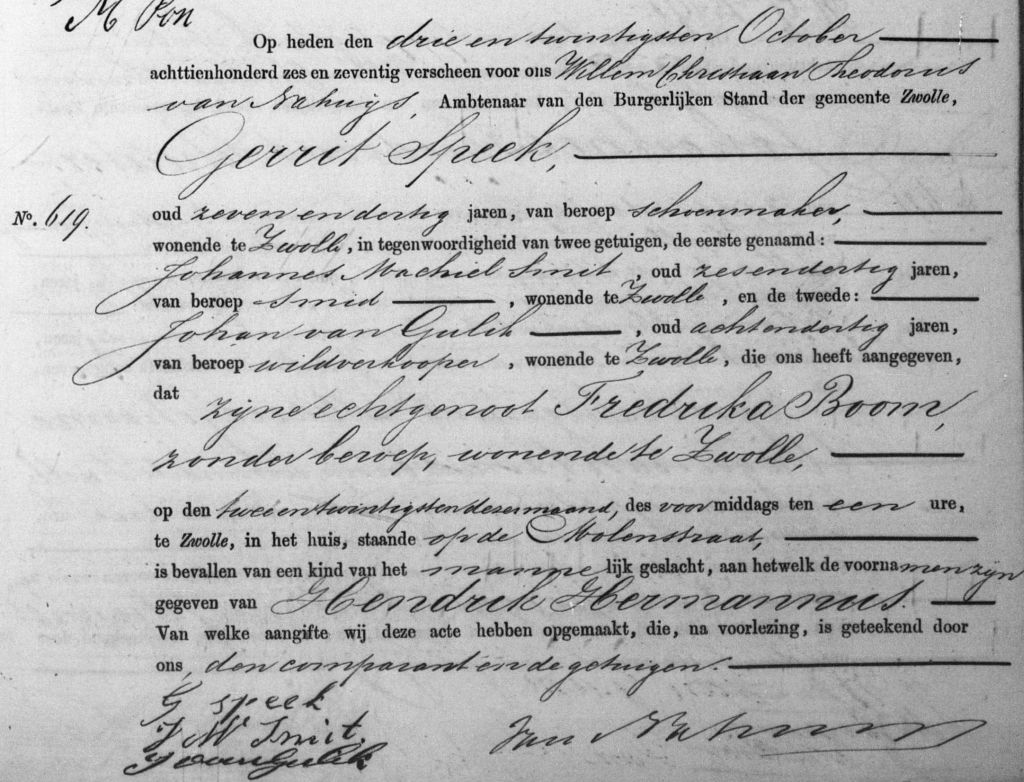 M Pon
Op heden den drie en twintigsten October
achttienhonderd zes en zeventig verscheen voor ons Willem Christiaan Theodorus
van Nahuys, Ambtenaar van den Burgerlijken Stand der gemeente Zwolle,
Gerrit Speek,
No. 619.
oud zeven en dertig jaren, van beroep schoenmaker,
wonende te Zwolle, in tegenwoordigheid van twee getuigen, de eerste genaamd:
Johannes Machiel Smit, oud zesendertig jaren,
van beroep smid, wonende te Zwolle, en de tweede:
Johan van Gulik, oud achtendertig jaren,
van beroep wildverkooper, wonende te Zwolle, die ons heeft aangegeven,
dat zijne echtgenoot Fredrika Boom,
zonder beroep, wonende te Zwolle,
op den tweeentwintigsten dezer maand, des voormiddags ten een ure,
te Zwolle, in het huis, staande op de Molenstraat,
is bevallen van een kind van het mannelijk geslacht, aan hetwelk de voornamen zijn
gegeven van Hendrik Hermannus.
Van welke aangifte wij deze acte hebben opgemaakt, die, na voorlezing, is geteekend door
ons, den comparant en de getuigen.
G Speek
J M Smit.
J van Gulik
Van Nahuys